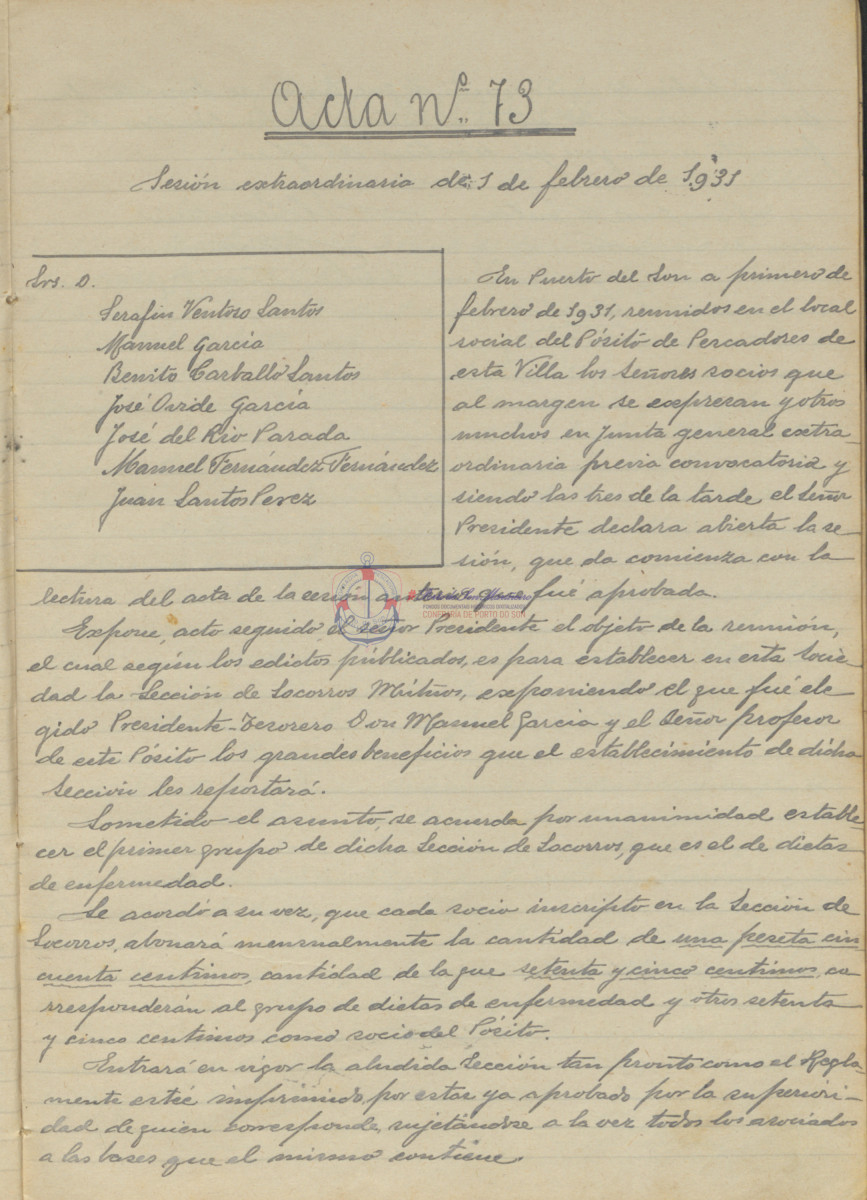 Acta nº 73
Sesión extraordinaria de 1 de febrero de 1931
Srs. D.
Serafin Ventoso Santos
Manuel García
Benito Carballo Santos
José Ovide García
José del Rio Parada
Manuel Fernández Fernández
Juan Santos Perez
En Puerto del Son a primero de
febrero de 1931, reunidos en el local
social del Pósito de Pescadores de
esta Villa los señores socios que
al margen se expresan y otros
muchos en Junta general extra
ordinaria previa convocatoria y
siendo las tres de la tarde el Señor
Presidente declara abierta la se-
sión, que da comienza con la
lectura del acta de la sesión anterior que fué aprobada.
Expone, acto seguido, el señor Presidente el objeto de la reunión,
el cual según los edictos públicados, es para establecer en esta Socie-
dad la Sección de Socorros Mútuos, exponiendo el que fué ele
gido Presidente-Tesorero Don Manuel García y el Señor profesor
de este Pósito los grandes beneficios que el establecimiento de dicha
Sección les reportará.
Sometido el asunto, se acuerda por unanimidad estable-
cer el primer grupo de dicha Sección de Socorros, que es el de dietas
de enfermedad.
Se acordó a su vez, que cada socio inscripto en la Sección de
Socorros, abonará mensualmente la cantidad de una peseta cin
cuenta centimos, cantidad de la que setenta y cinco centimos, co
rresponderán al grupo de dietas de enfermedad y otros setenta
y cinco centimos como socio del Pósito.
Entrará en vigor la aludida Sección tan pronto como el Regla-
mente esteé imprimido, por estar ya aprobado por la superiori-
dad de quien corresponde, sujetándose a la vez todos los asociados
a las bases que el mismo contiene.
FONDOS DOCUMENTAIS HISTÓRICOS DIGITALIZADOS
CONFRARÍA DE PORTO DO SON